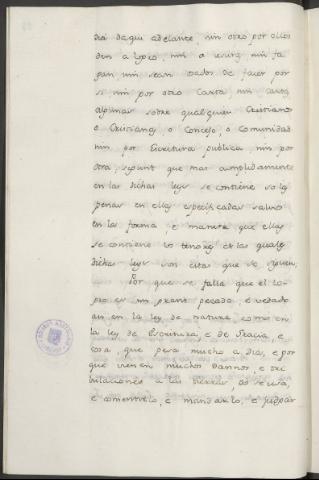 dra daqui adelante, nin otro por ellos
den a logro, nin a usura, nin fa
gan nin sean osados de facer por
si nin por otro Carta, nin cartas
algunas sobre qualquier Cristiano
o Cristiana, o Concejo, o Comunidad
nin por Escritura publica, nin por
otra, segunt que mas amplidamente
en las dichas leys se contiene so las
penas en ellas especificadas salvo
en la forma, e manera que ellas
se contiene los tenores de las quales
dichas leys son estas que se siguen.
Por que se falla que el lo-
gro es mui grant pecado, e vedado
asi en la ley de natura, como en
la ley de Escritura, e de Gracia, e
cosa, que pesa mucho a Dios, e por
que vienen muchos dannos, e tri
bulaciones a las tierras, do se usa,
e consentirlo, e mandarlo, e judgar